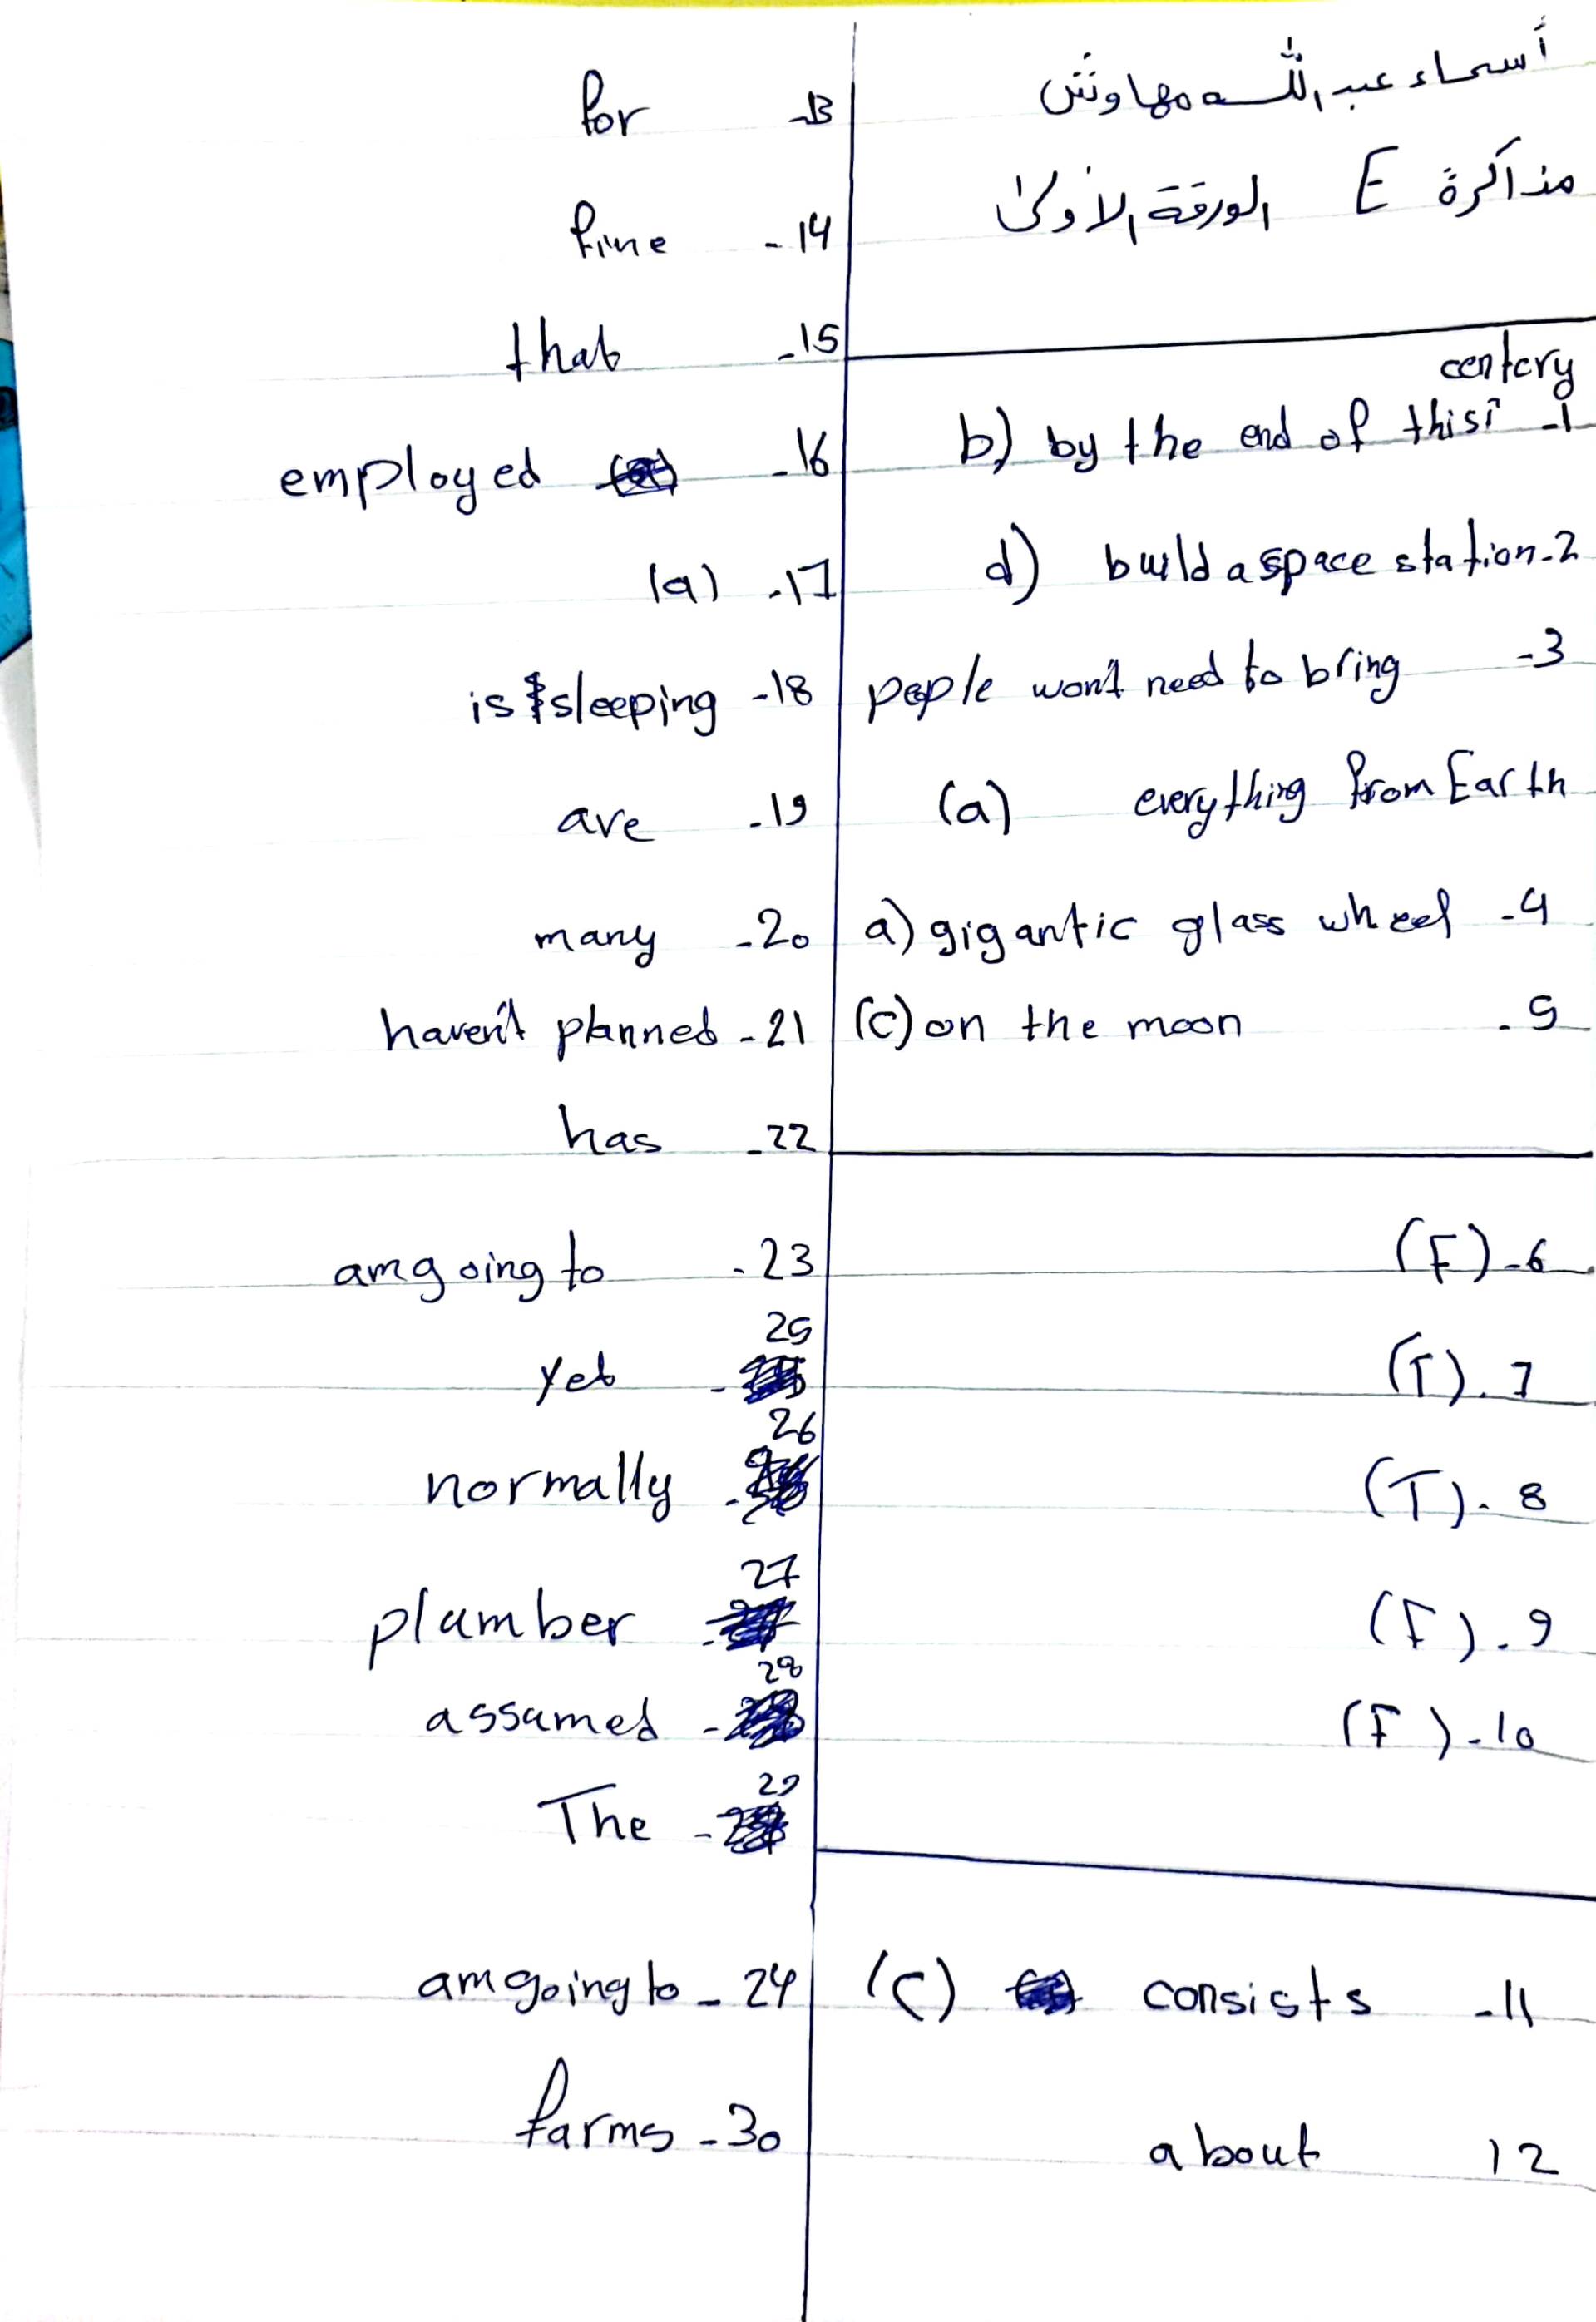 أسماء عبد الله مهاوش
مذاكرة E الورقة الأولى
centery
b) by the end of this -1
d) build a space station-2
peple won't need to bring -3
(a) everything from Earth
a) gigantic glass wheel -4
(c) on the moon -5
(F)-6
(T)-7
(T)-8
(F)-9
(F)-10
(c) consists -11
about 12
for -13
fine -14
that -15
employed -16
(a) -17
is sleeping -18
are -19
many -20
haven't planned -21
has -22
am going to -23
yet - 25
normally - 26
plumber - 27
assumed - 28
The - 29
am going to - 24
farms -30